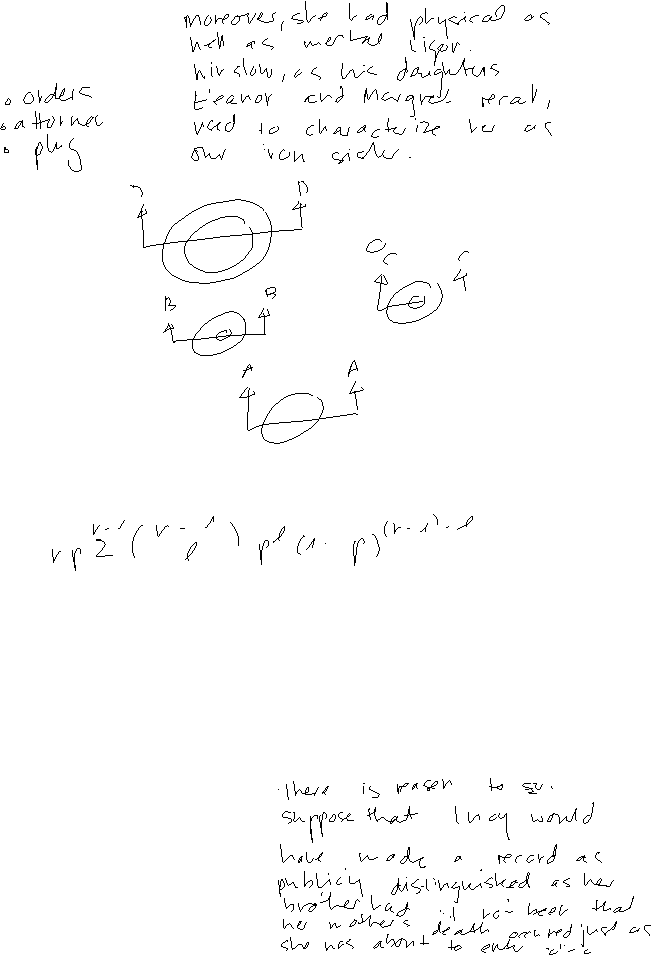 moreover, she had physical as
well as mental vigor.
Winslow, as his daughters
Eleanor and Margret recall,
used to characterize her as
our iron sister.
• orders
• attorney
• plug
D D
C C
B B
A A
r p Σ^{r-1} ( r - 1 \ l ) p^l (1 - p)^{(r-1)-l}
There is reason to su-
suppose that Lucy would
have made a record as
publicly distinguished as her
brother had it not been that
her mother's death occured just as
she was about to enter